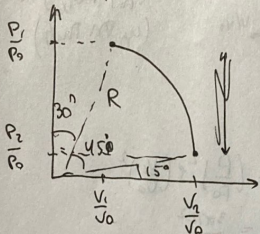 P1/P0
30°
R
P2/P0
45°
15°
V1/V0
V2/V0